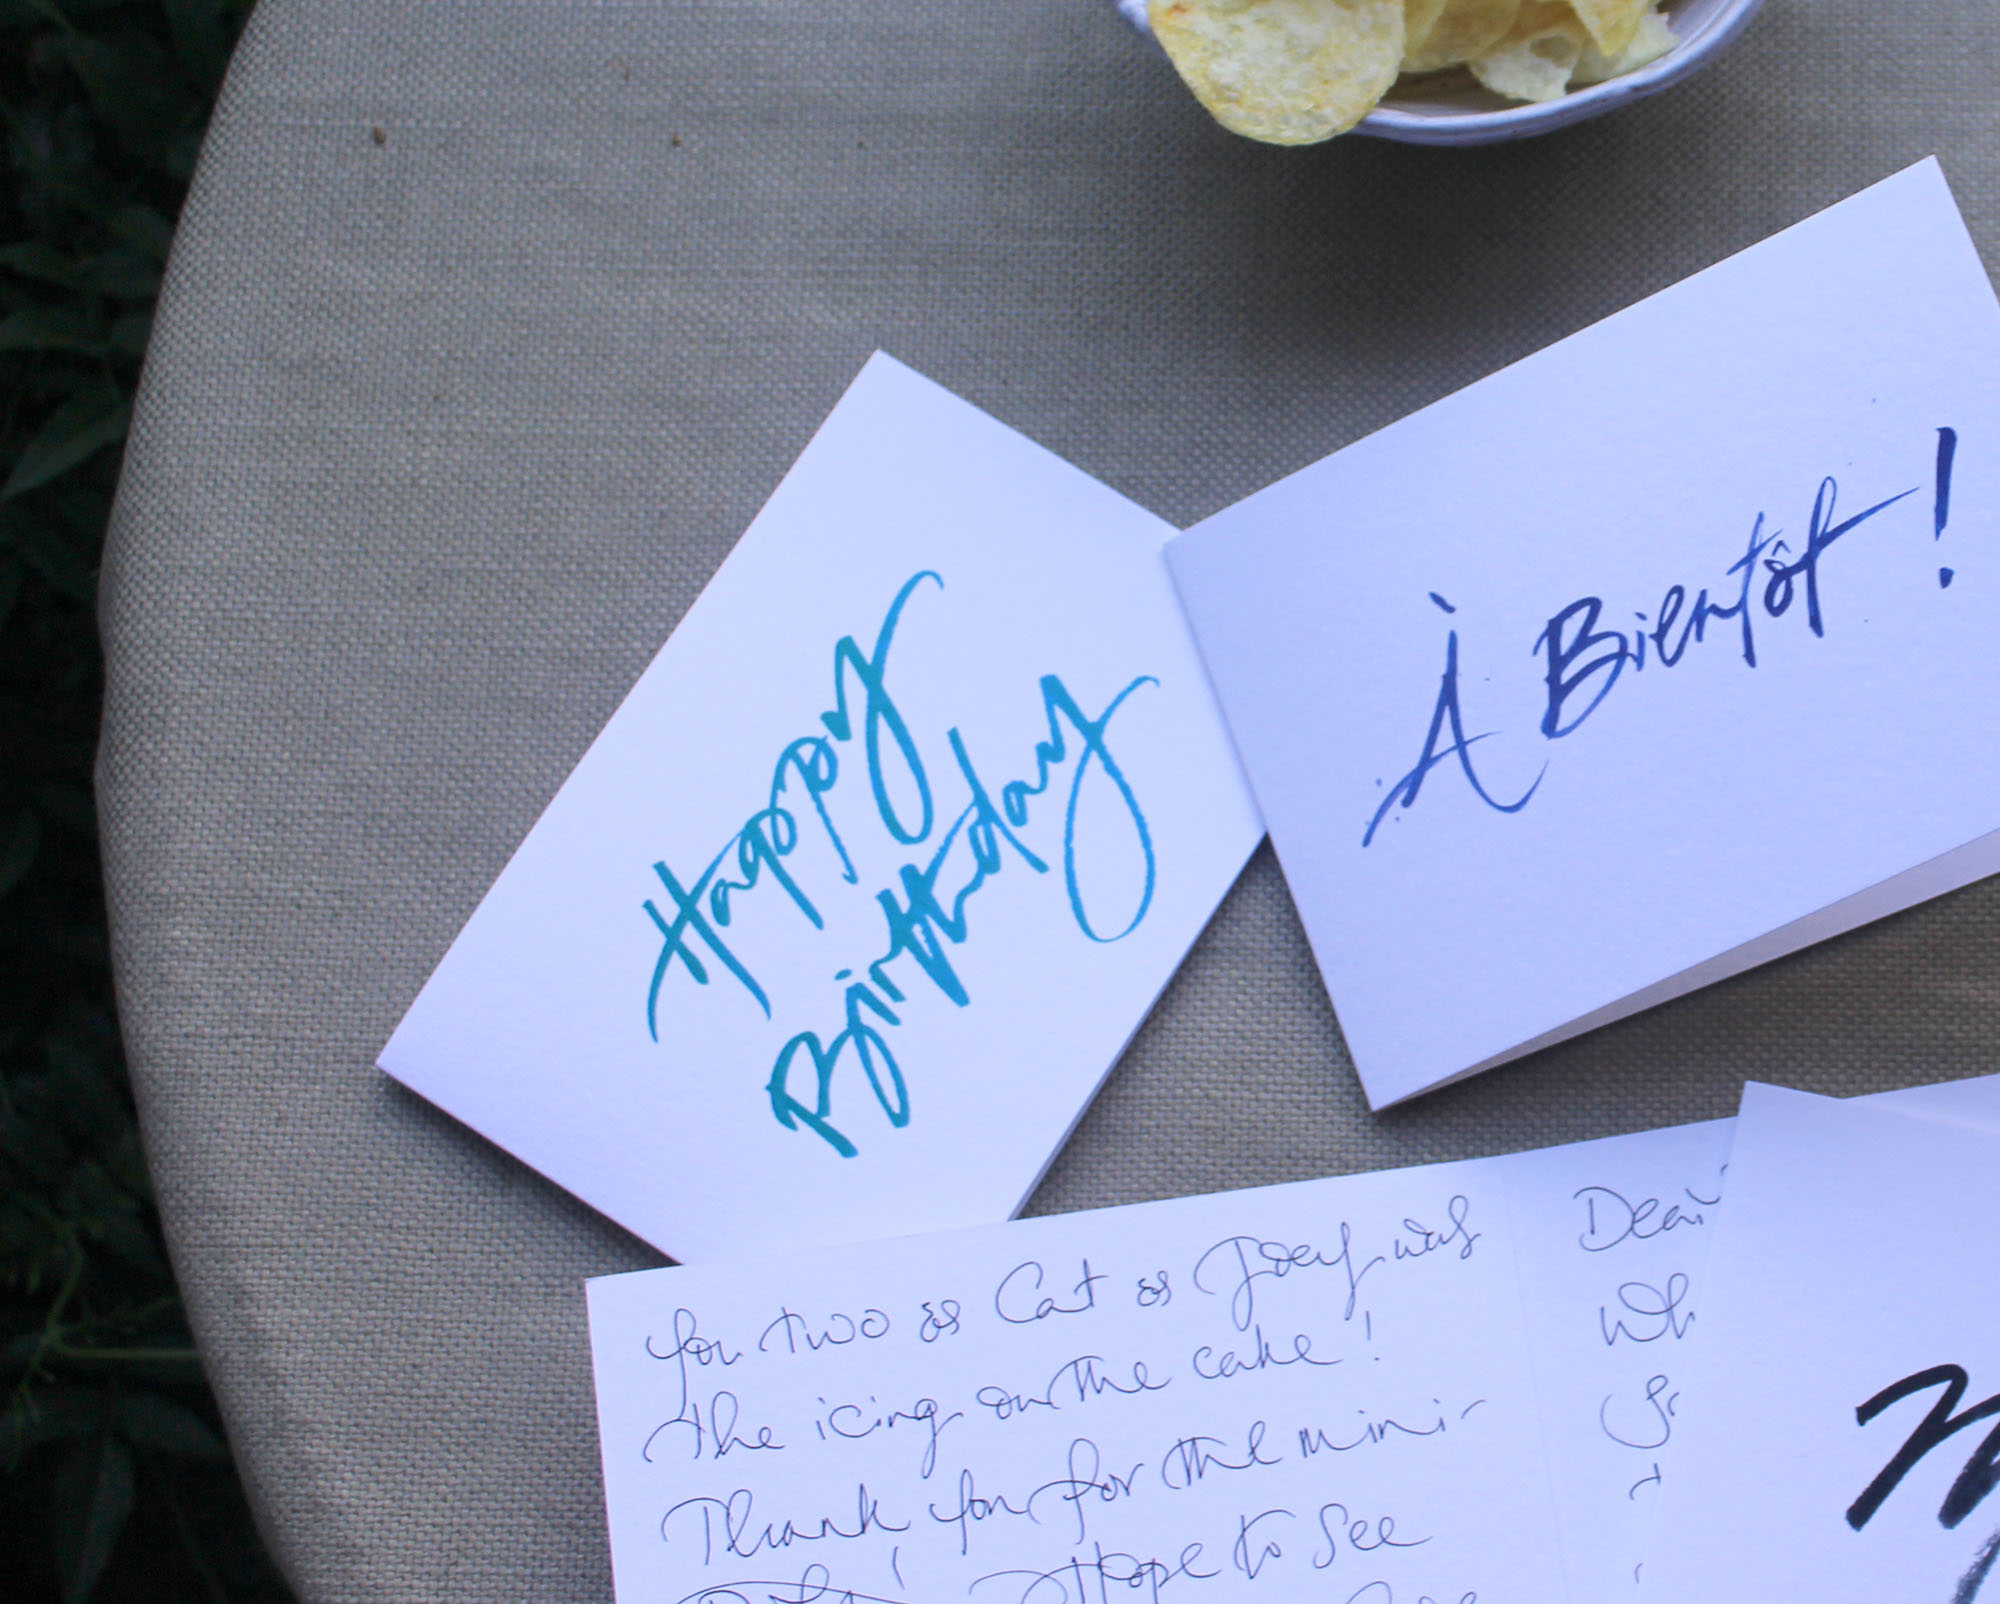 Happy
Birthday
À Bientôt !
You two & Cat & Joey was
the icing on the cake !
Thank you for the mini-
Hope to see
Dear
Wh